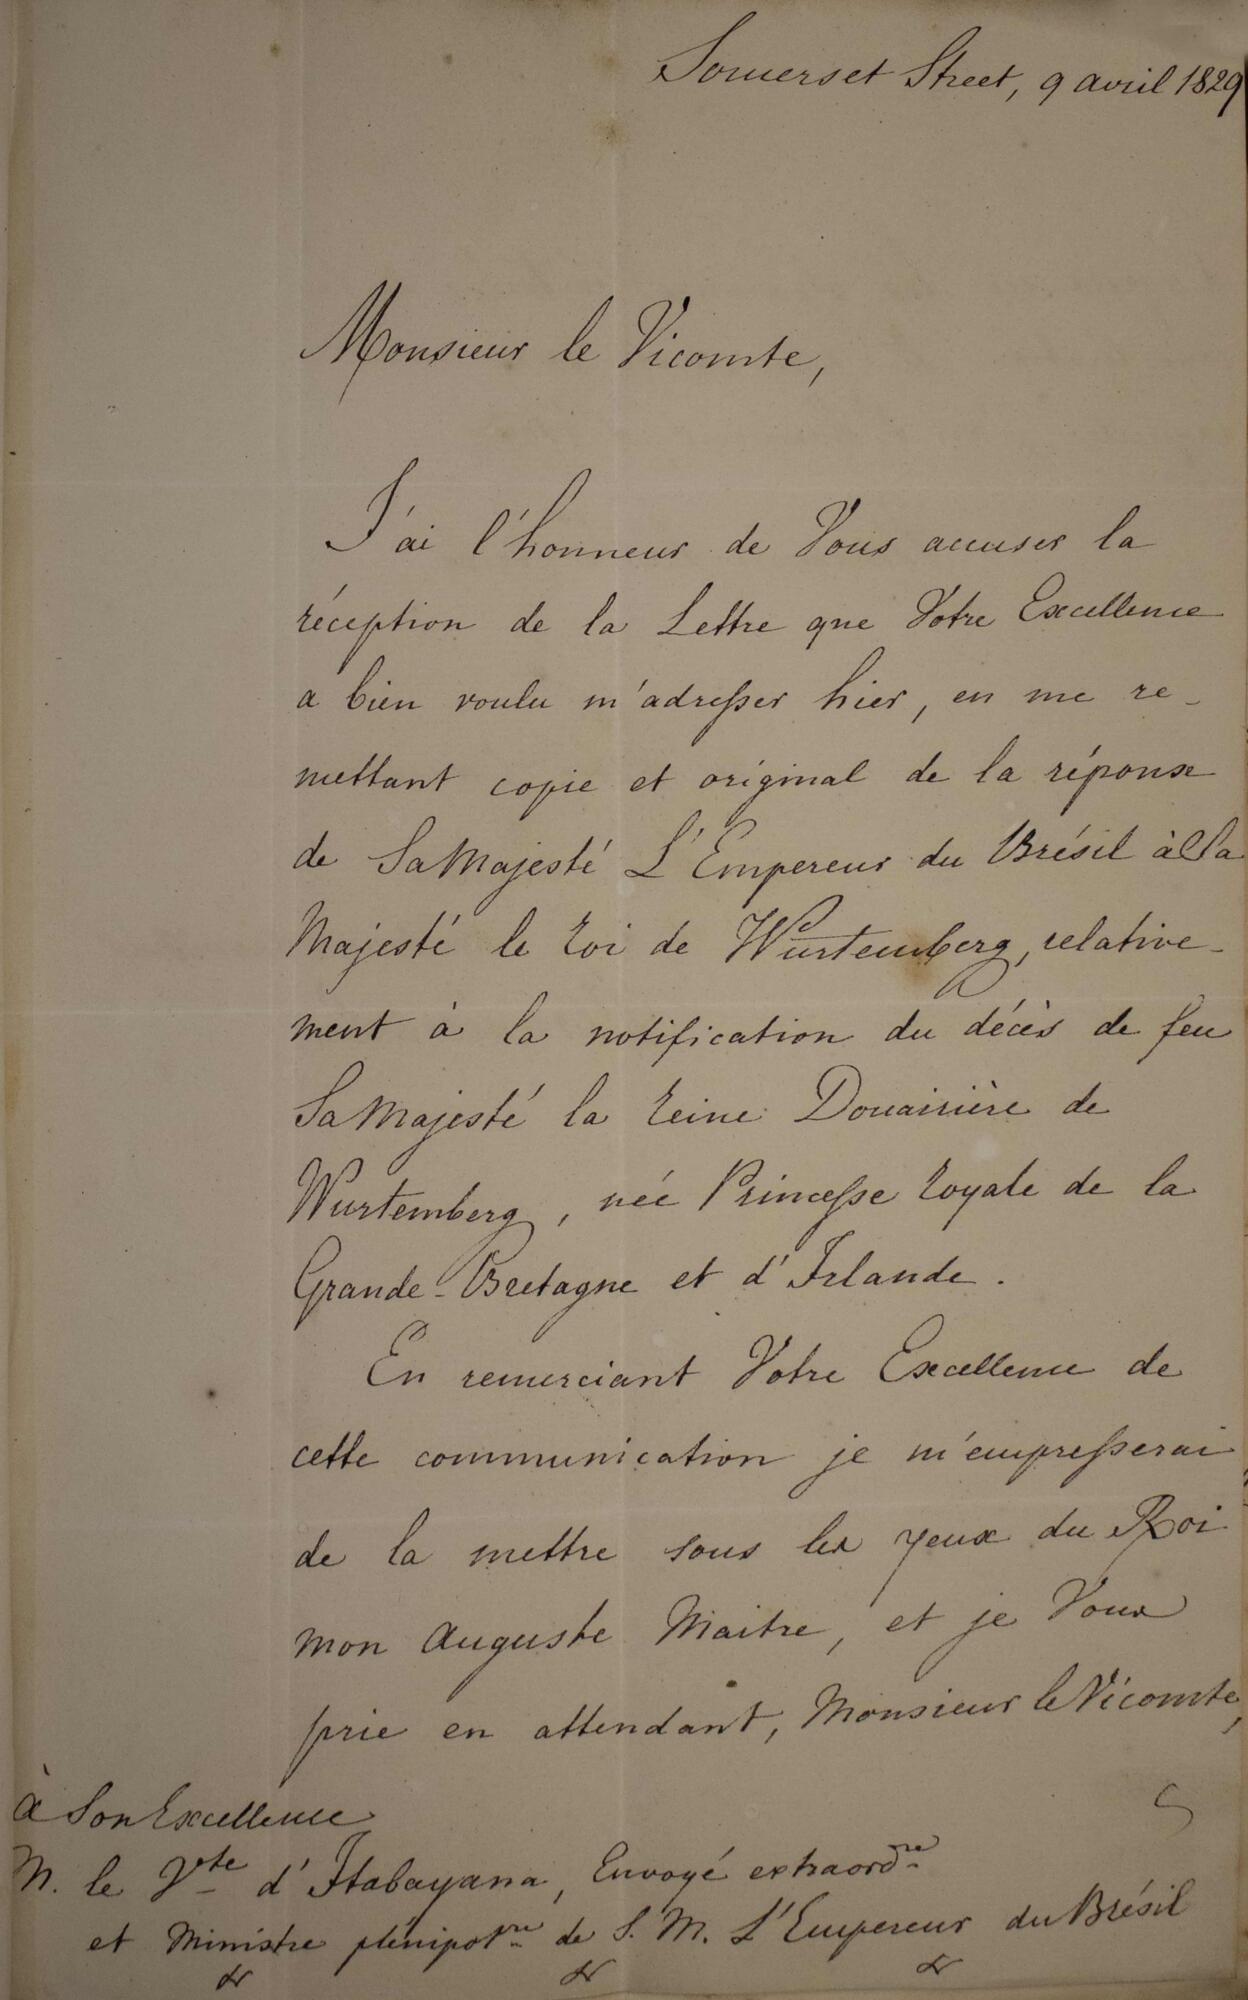 Somerset Street, 9 avril 1829
Monsieur le Vicomte,
J'ai l'honneur de Vous accuser la
réception de la Lettre que Votre Excellence
a bien voulu m'adresser hier, en me re-
mettant copie et original de la réponse
de Sa Majesté L'Empereur du Brésil à Sa
Majesté le roi de Wurtemberg, relative-
ment à la notification du décès de feu
Sa Majesté la reine Douairière de
Wurtemberg, née Princesse royale de la
Grande-Bretagne et d'Irlande.
En remerciant Votre Excellence de
cette communication je m'empresserai
de la mettre sous les yeux du Roi
mon Auguste Maitre, et je Vous
prie en attendant, Monsieur le Vicomte,
à Son Excellence
M. le Vte d'Itabayana, Envoyé extraordre
et Ministre plénipotre de S. M. L'Empereur du Brésil
& & &